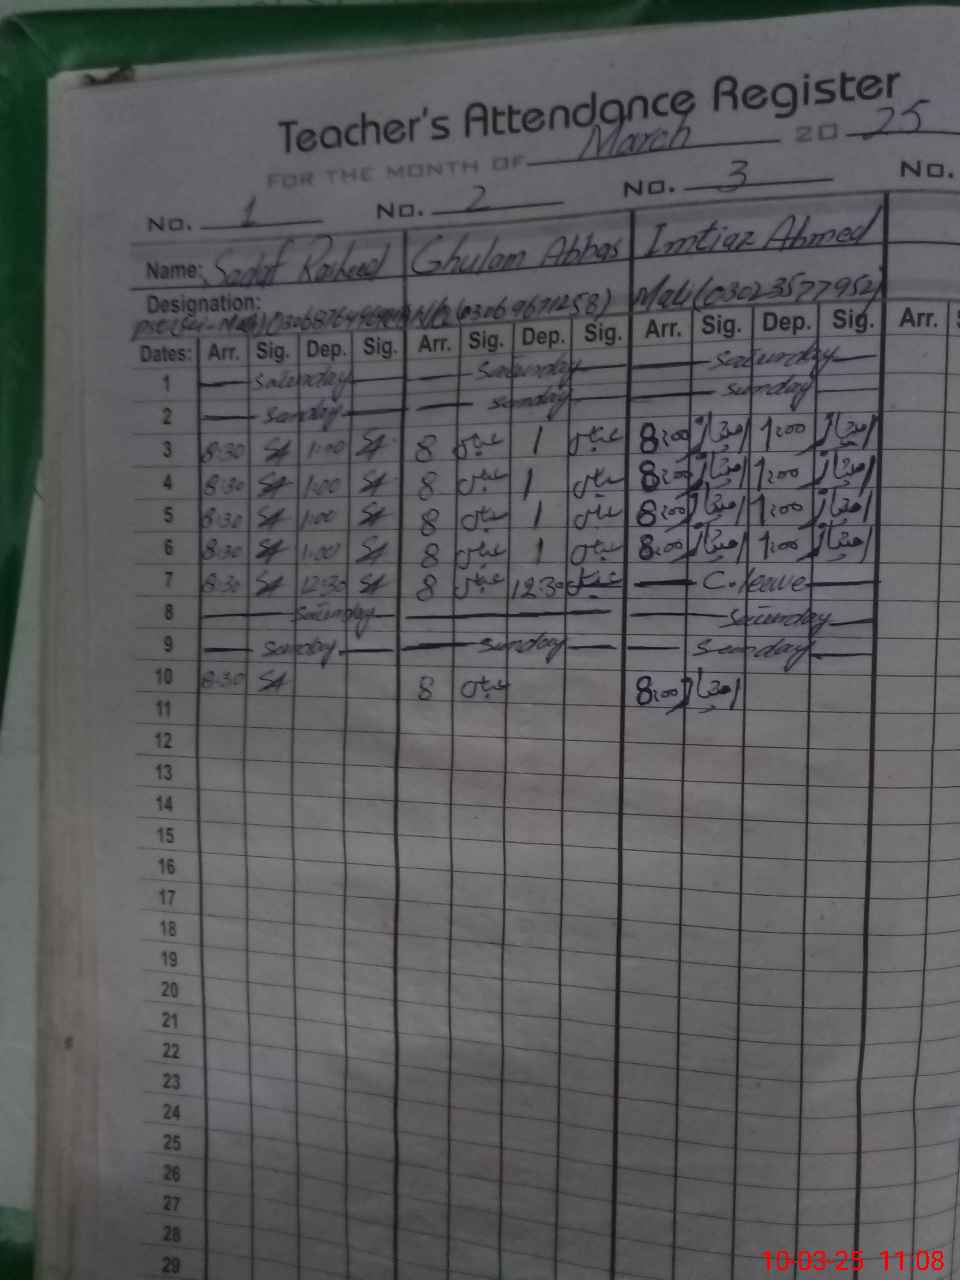 Teacher's Attendance Register
FOR THE MONTH OF March 2025
No. 1 No. 2 No. 3 No.
Name: Sadaf Rasheed Ghulam Abbas Imtiaz Ahmed
Designation:
(03069671258) Mali (03023577952)
Dates: Arr. Sig. Dep. Sig. Arr. Sig. Dep. Sig. Arr. Sig. Dep. Sig. Arr.
1 Saturday Saturday Saturday
2 Sunday Sunday Sunday
3 8:30 SA 1:00 SA 8 عباس 1 عباس 8:00 امتیاز 1:00 امتیاز
4 8:30 SA 1:00 SA 8 عباس 1 عباس 8:00 امتیاز 1:00 امتیاز
5 8:30 SA 1:00 SA 8 عباس 1 عباس 8:00 امتیاز 1:00 امتیاز
6 8:30 SA 1:00 SA 8 عباس 1 عباس 8:00 امتیاز 1:00 امتیاز
7 8:30 SA 12:30 SA 8 عباس 12:30 عباس C.leave
8 Saturday Saturday
9 Sunday Sunday Sunday
10 8:30 SA 8 عباس 8:00 امتیاز
11
12
13
14
15
16
17
18
19
20
21
22
23
24
25
26
27
28
29
10-03-25 11:08